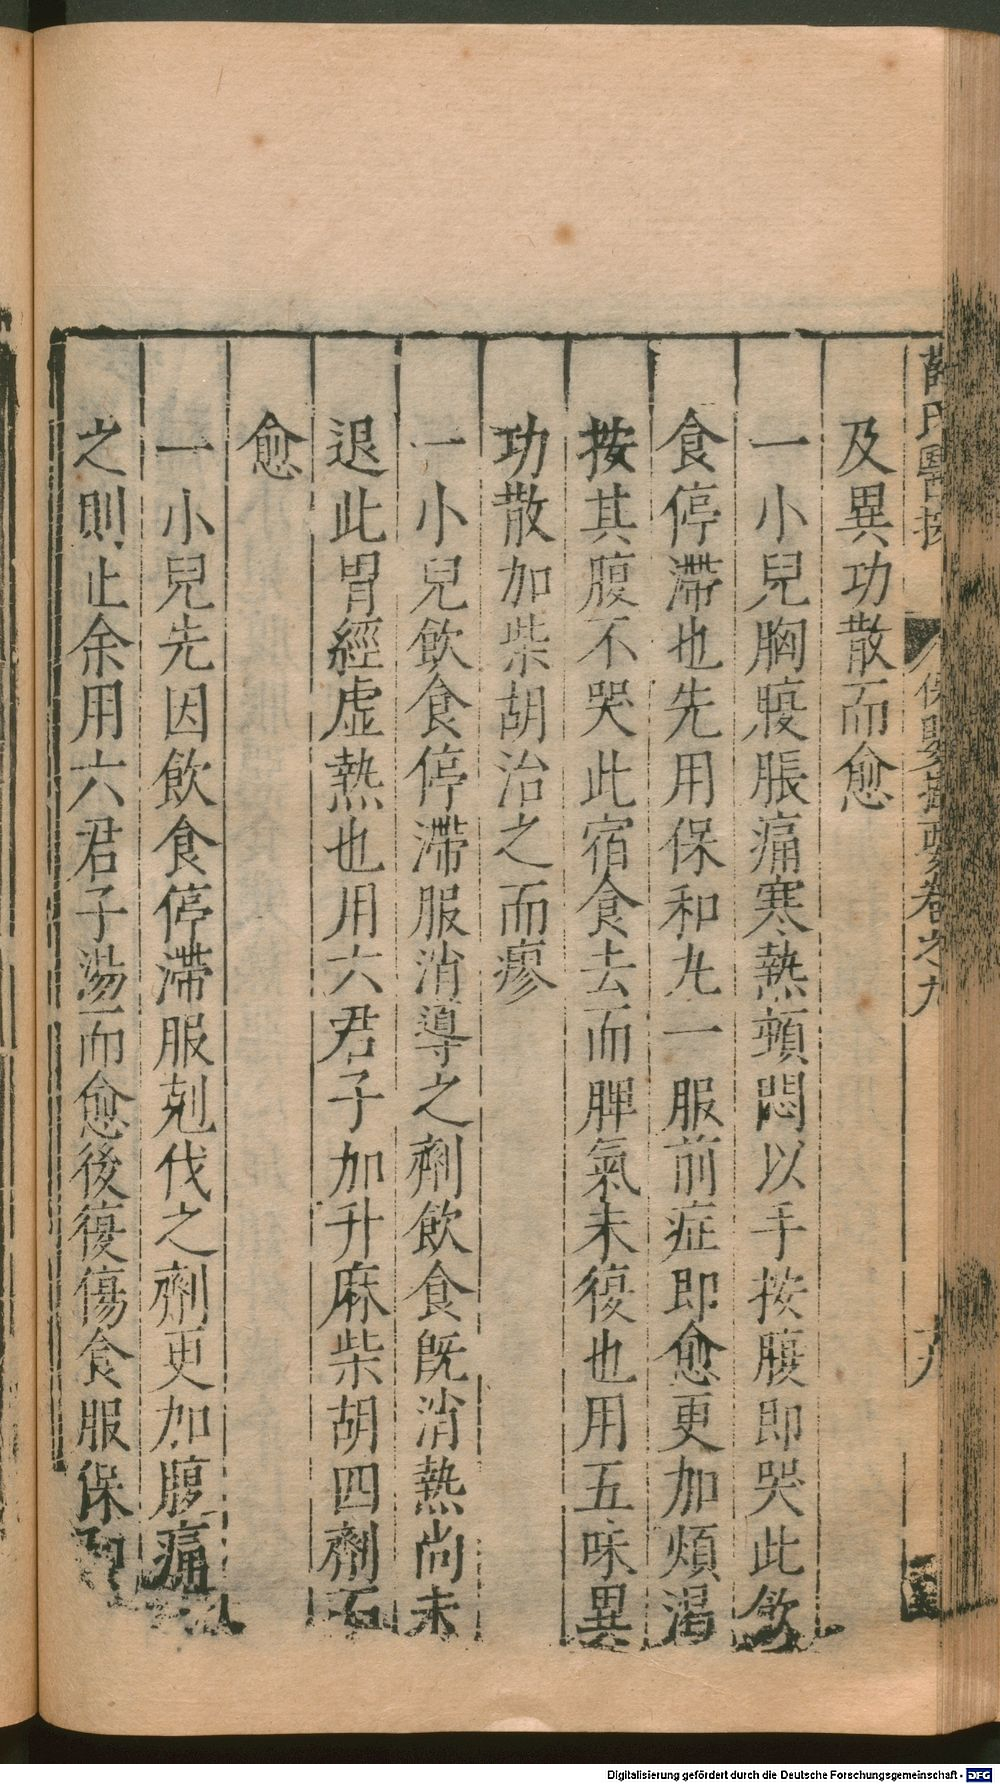 薛氏醫按
保嬰撮要卷之九
十九
及異功散而愈
一小兒胸腹脹痛寒熱頓悶以手按腹即哭此飲
食停滯也先用保和丸一服前症即愈更加煩渴
按其腹不哭此宿食去而脾氣未復也用五味異
功散加柴胡治之而瘳
一小兒飲食停滯服消導之劑飲食旣消熱尚未
退此胃經虛熱也用六君子加升麻柴胡四劑而
愈
一小兒先因飲食停滯服剋伐之劑更加腹痛
之則止余用六君子湯而愈後復傷食服保和
Digitalisierung gefördert durch die Deutsche Forschungsgemeinschaft - DFG